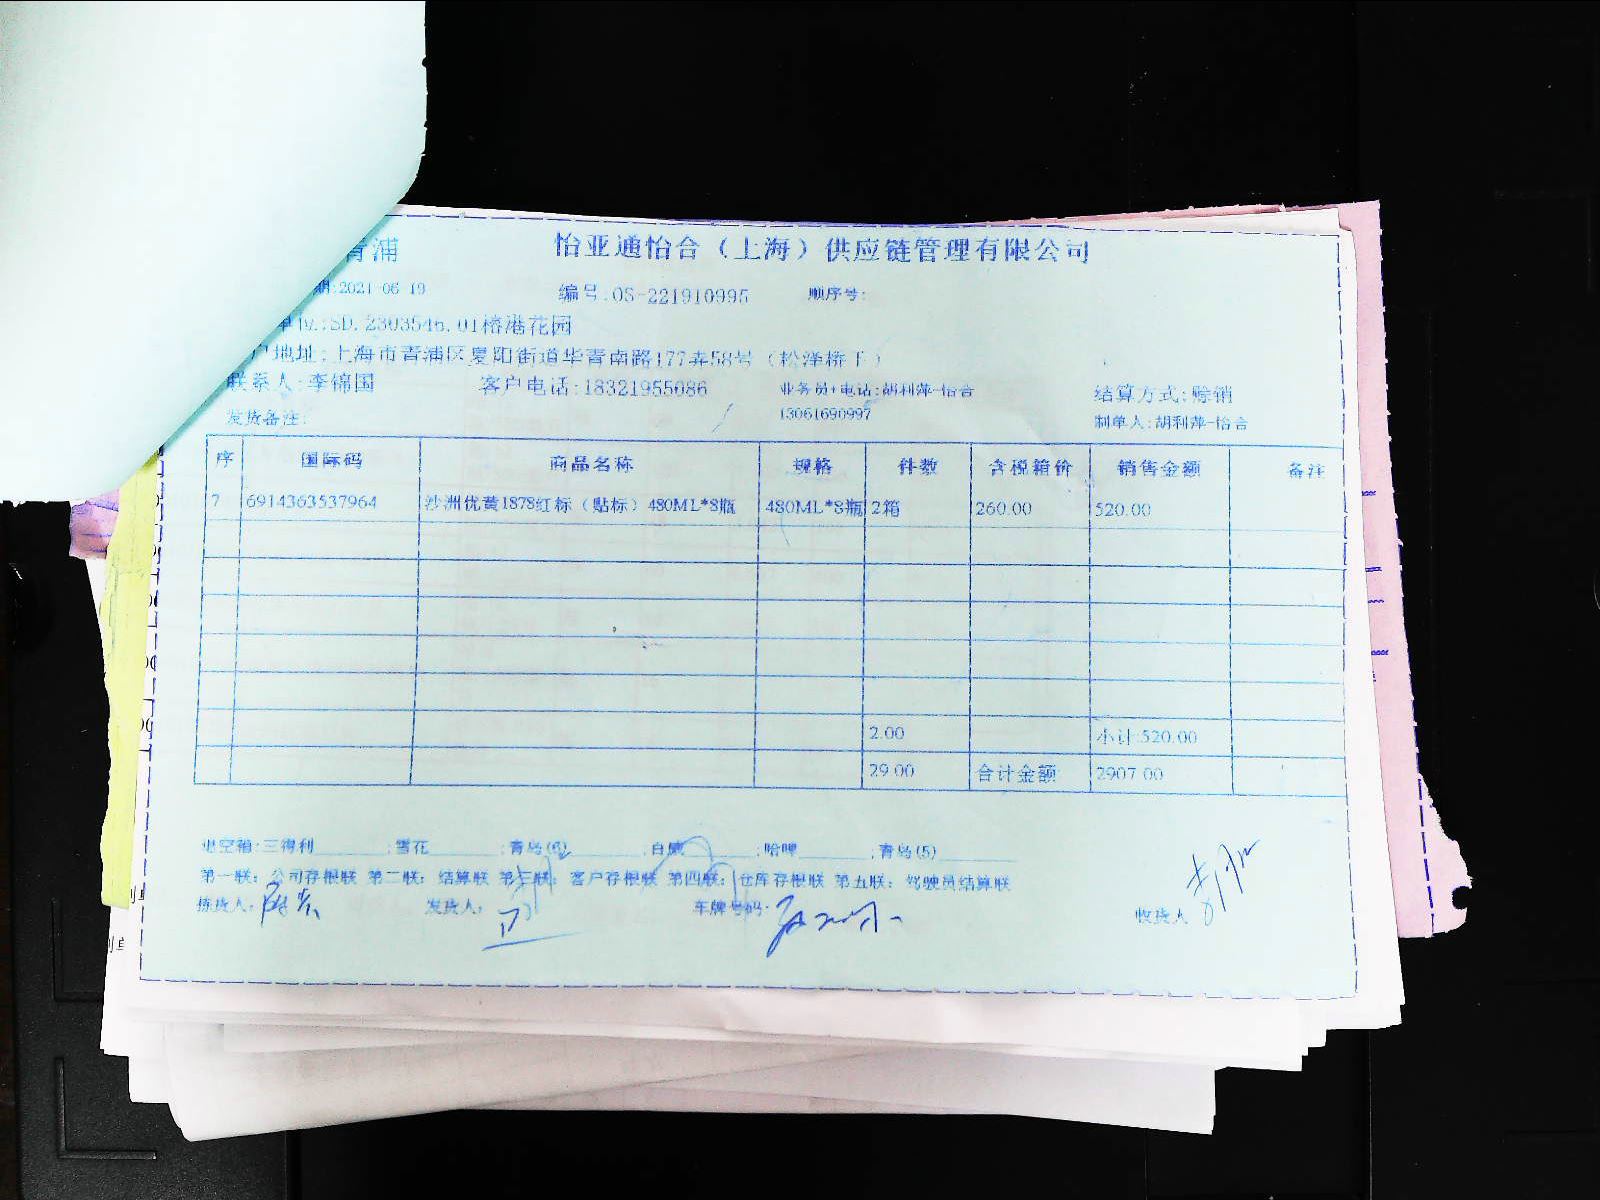 青浦 怡亚通怡合（上海）供应链管理有限公司
期:2021-06-19 编号.OS-221910995 顺序号:
单位:SD.2303546.01椿港花园
户地址:上海市青浦区夏阳街道华青南路177弄58号（松泽桥下）
联系人:李锦国 客户电话:18321955086 业务员+电话:胡利萍-怡合 结算方式:赊销
发货备注: 13061690997 制单人:胡利萍-怡合
序 国际码 商品名称 规格 件数 含税箱价 销售金额 备注
7 6914363537964 沙洲优黄1878红标（贴标）480ML*8瓶 480ML*8瓶 2箱 260.00 520.00
2.00 小计:520.00
29.00 合计金额 2907.00
退空箱:三得利______;雪花______;青岛(6)______;白威______;哈啤______;青岛(5)______
第一联: 公司存根联 第二联: 结算联 第三联: 客户存根联 第四联: 仓库存根联 第五联: 驾驶员结算联
拣货人: 发货人: 车牌号码: 收货人